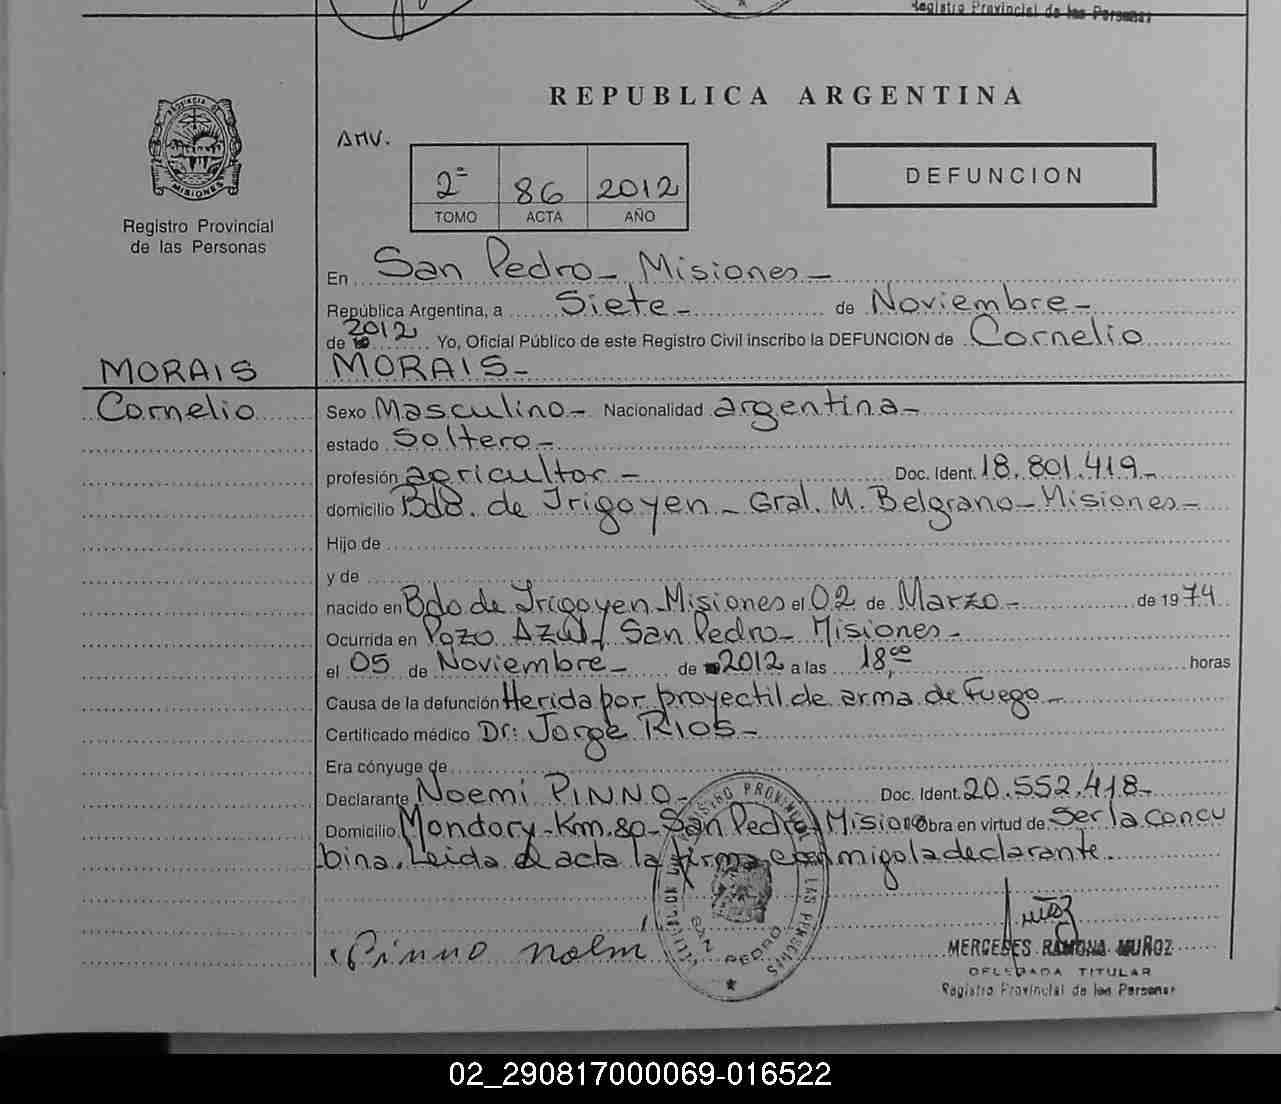 Registro Provincial de las Personas
REPUBLICA ARGENTINA
PROVINCIA DE
MISIONES
Registro Provincial
de las Personas
AMV.
2º 86 2012
TOMO ACTA AÑO
DEFUNCION
En San Pedro - Misiones -
República Argentina, a Siete - de Noviembre -
de 2012 Yo, Oficial Público de este Registro Civil inscribo la DEFUNCION de Cornelio
MORAIS MORAIS -
Cornelio Sexo Masculino - Nacionalidad argentina -
estado Soltero -
profesión agricultor - Doc. Ident. 18.801.419 -
domicilio Bdo. de Irigoyen - Gral. M. Belgrano - Misiones -
Hijo de
y de
nacido en Bdo de Irigoyen - Misiones el 02 de Marzo - de 1974
Ocurrida en Pozo Azul / San Pedro - Misiones -
el 05 de Noviembre - de 2012 a las 18,00 horas
Causa de la defunción Herida por proyectil de arma de Fuego -
Certificado médico Dr: Jorge RIOS -
Era cónyuge de
Declarante Noemi PINNO - Doc. Ident. 20.552.418 -
Domicilio Mondory - Km. 80 - San Pedro - Misiones Obra en virtud de Ser la concu
bina. Leida el acta la firma conmigo la declarante.
Pinno Noemi
SAN PEDRO
MERCEDES RAMONA MUÑOZ
DELEGADA TITULAR
Registro Provincial de las Personas
02_290817000069-016522